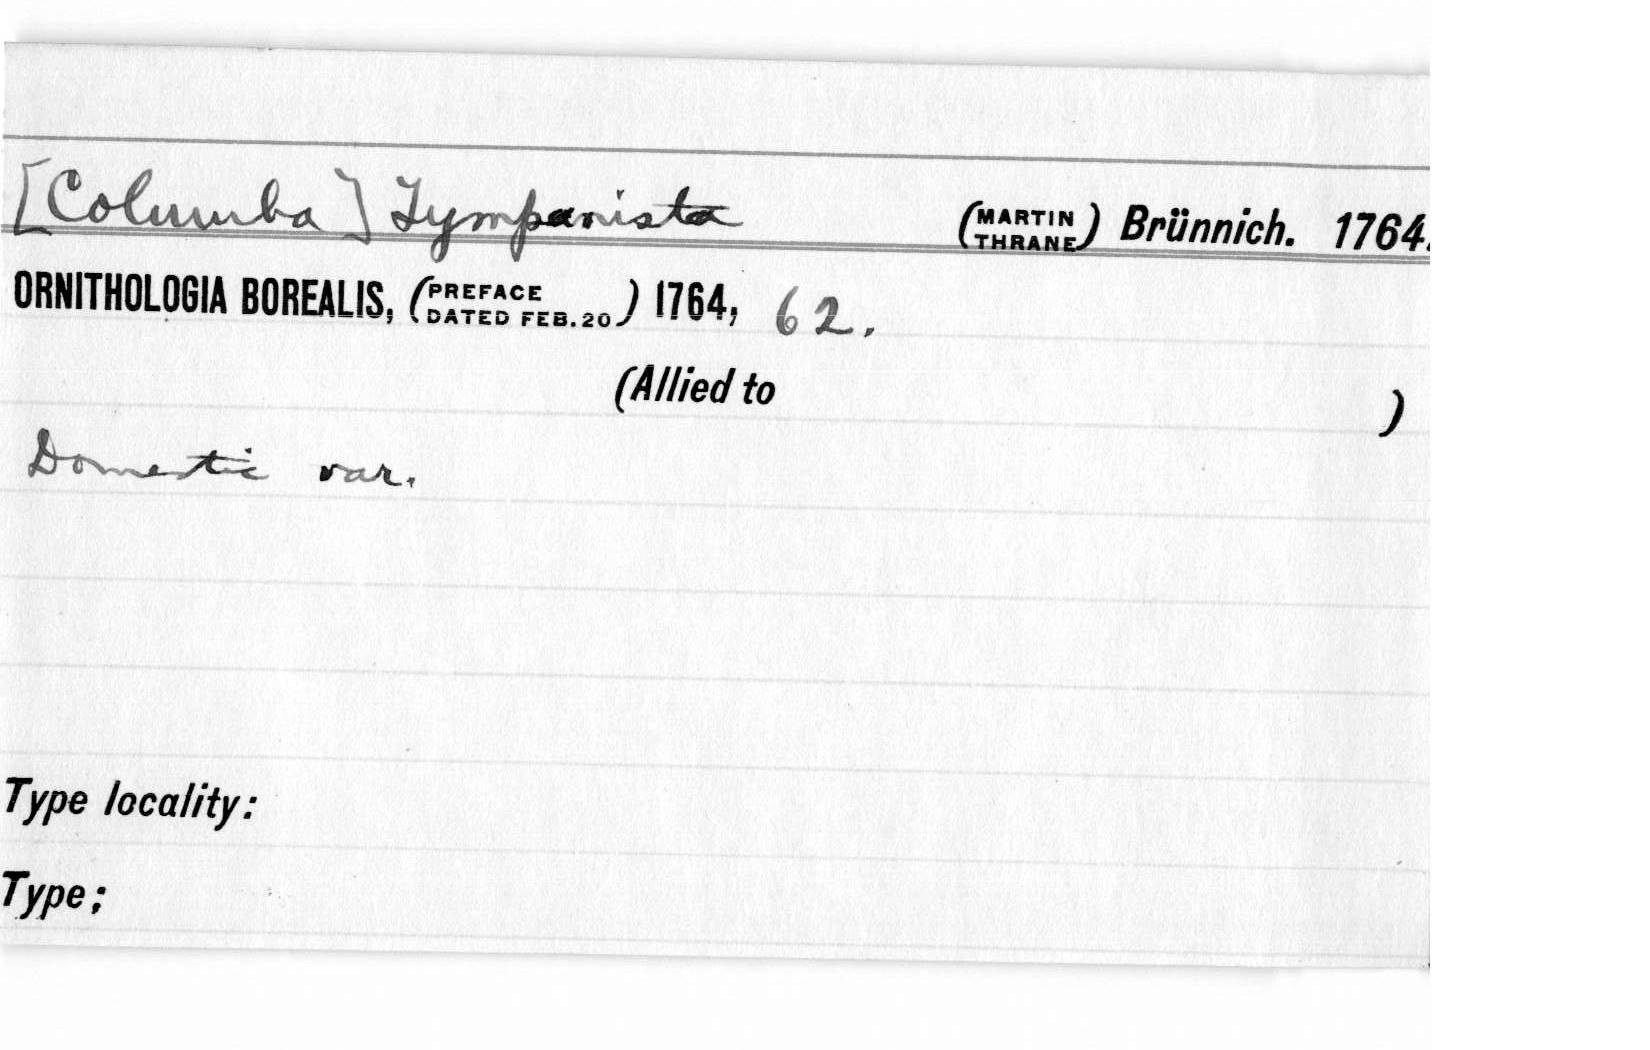 [Columba] Tympanista (MARTIN THRANE) Brünnich. 1764.
ORNITHOLOGIA BOREALIS, (PREFACE DATED FEB. 20) 1764, 62.
(Allied to )
Domestic var.
Type locality:
Type: